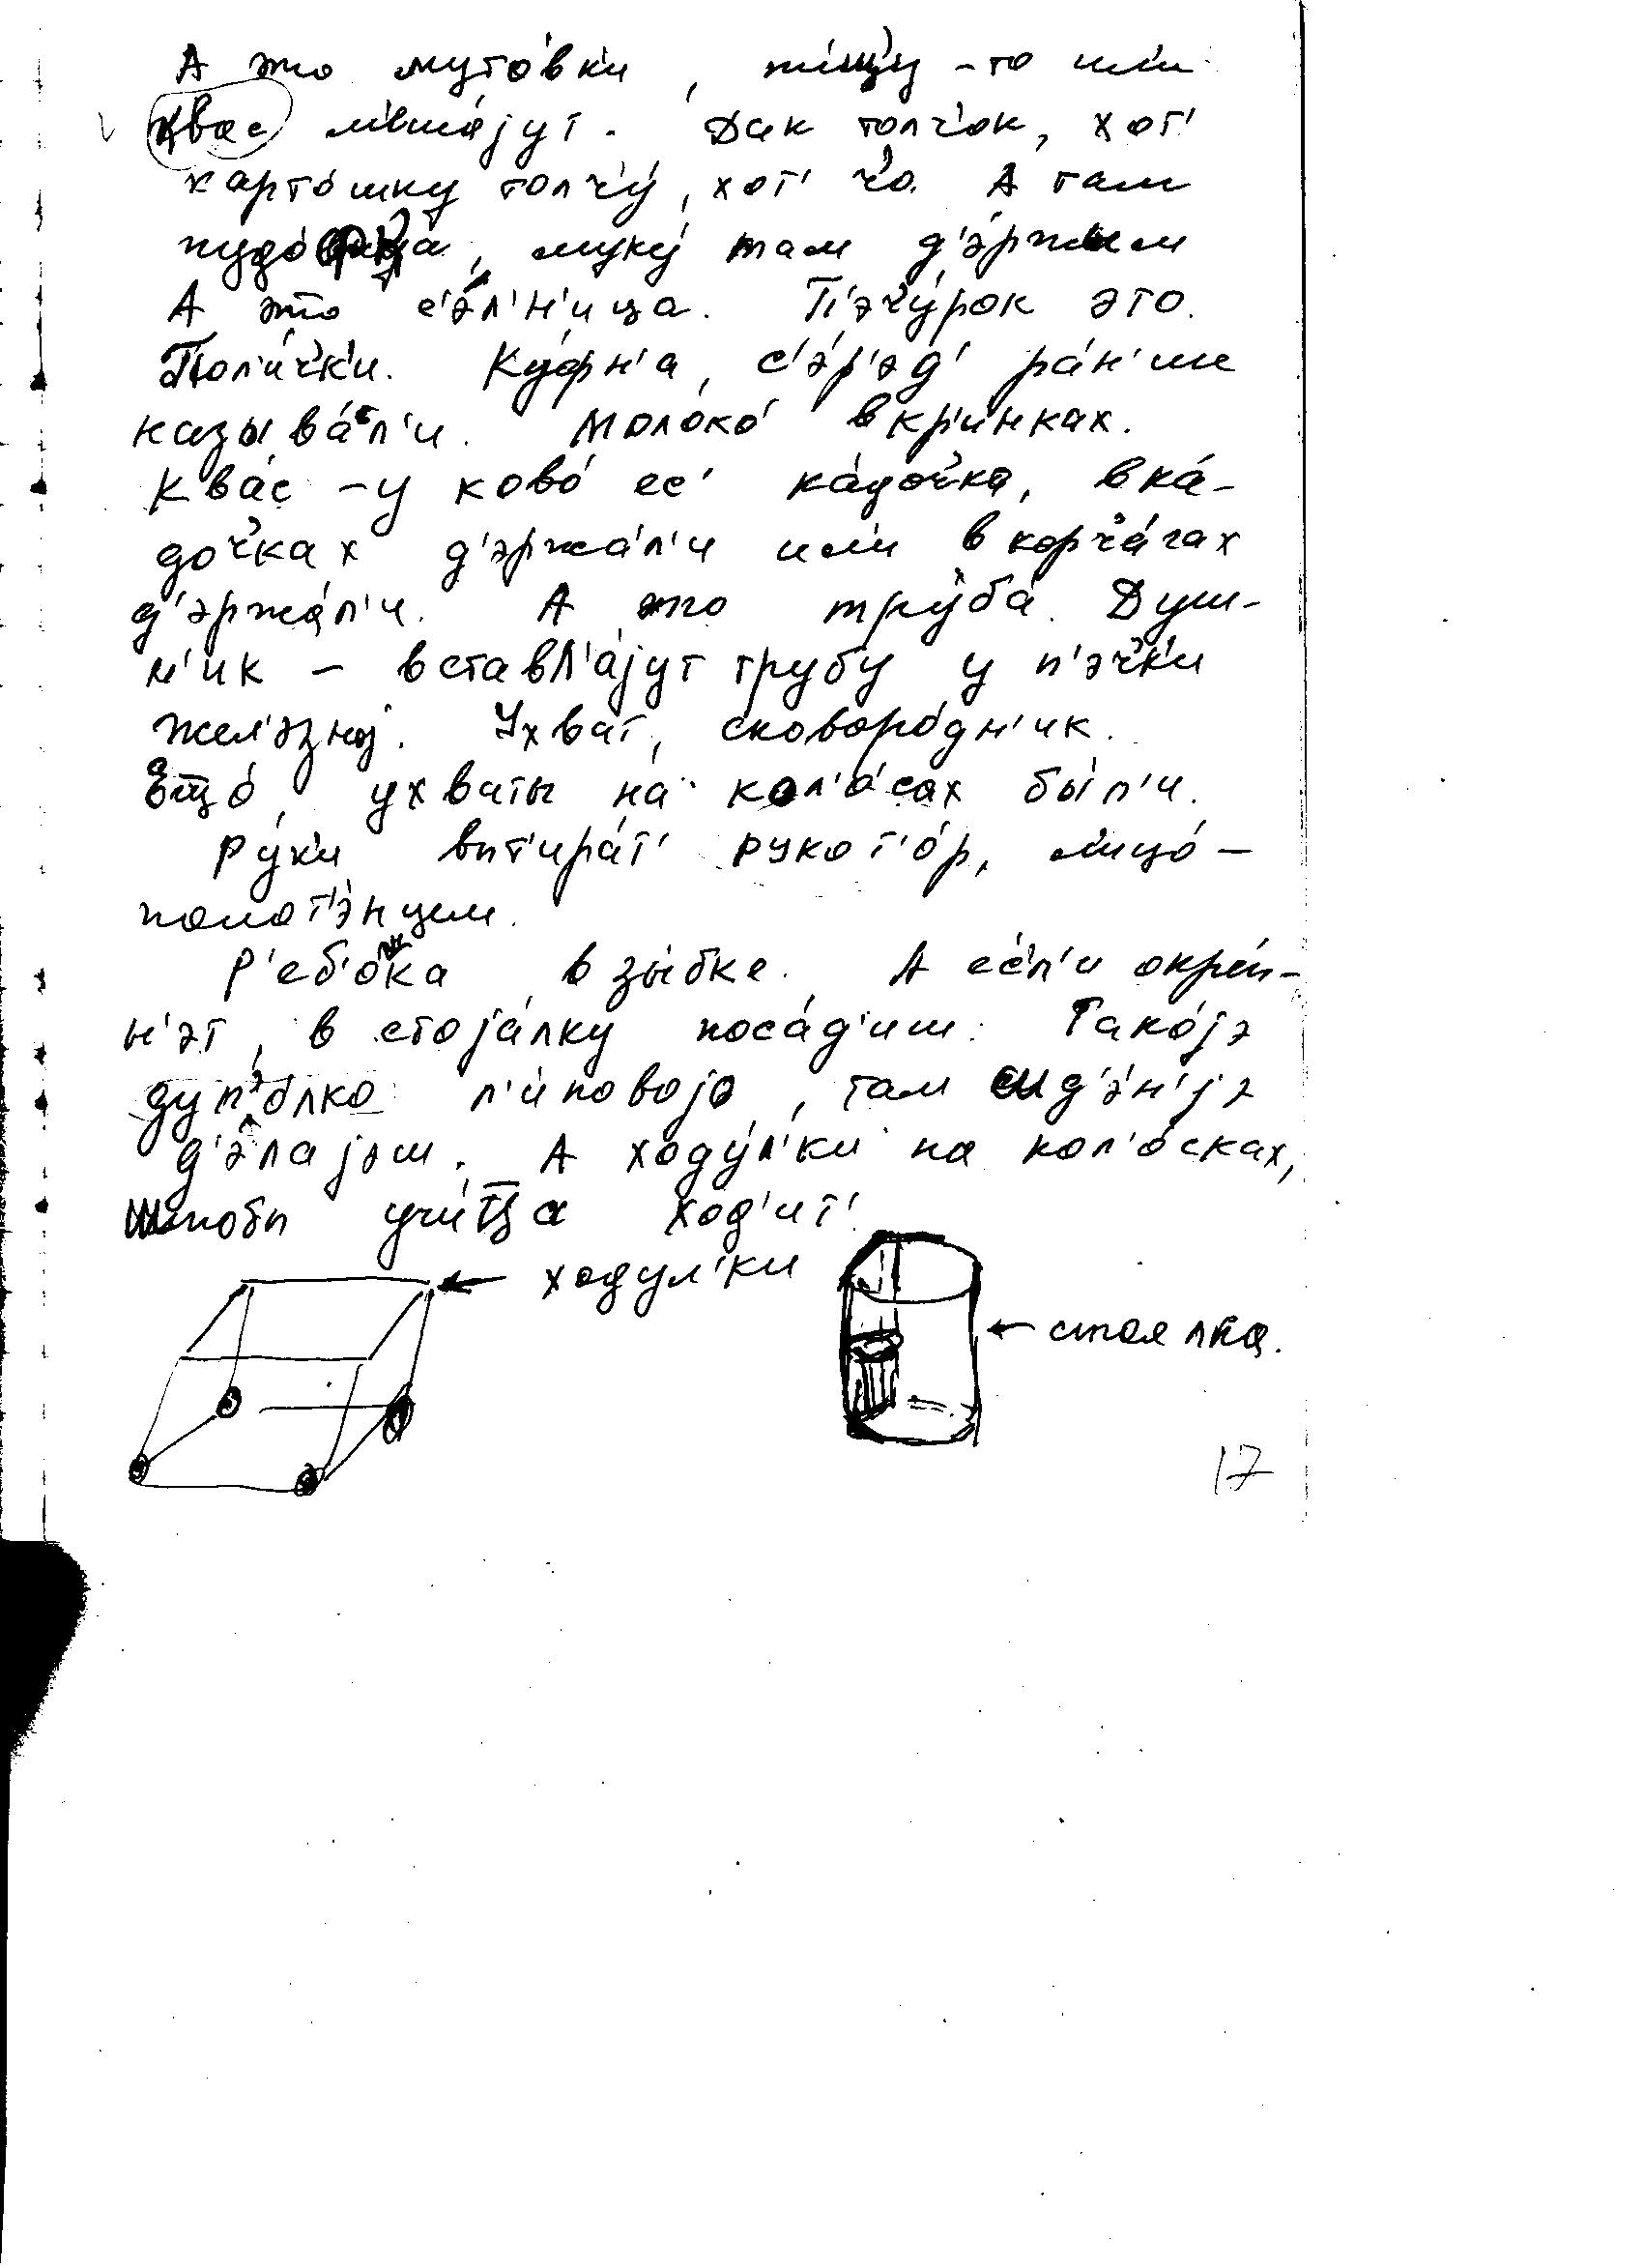 А это мутóвк'и, п'и́щу-то ил'и
квас м'ешáјут. Дак толч'óк, хот'
картóшку толч'у́, хот' ч'о. А там
мукý там д'э́ржым
А э́то с'э́л'н'ица. П'эч'у́рок это.
Пол'и́ч'к'и. Ку́фн'а, с'э́р'эд' рáн'ше
назывáл'и. Молокó в кр'инках.
Квáс – у ковó ес' кáдоч'ка, в кá-
доч'ках д'эржáл'и ил'и в корч'áгах
д'эржáл'и. А это трубá. Душ-
н'ик – вставл'áјут трубу у п'эч'к'и
жел'э́зној. Ухвáт, сковорóдн'ик.
Ещó ухваты на кол'óсах бы́л'и.
Ру́к'и вытирáт' рукот'óр, л'ицó –
полот'э́нцем.
Р'еб'óнка в зы́бке. А éсл'и окр'éп-
н'эт, в стојáлку посáд'иш. Такójэ
дупл'óлко л'и́повојо, там с'ид'э́н'јэ
д'э́лајэш. А ходу́л'к'и на кол'óсках,
штобы учи́цца ход'и́т'.
ходул'ки
стоялка.
17